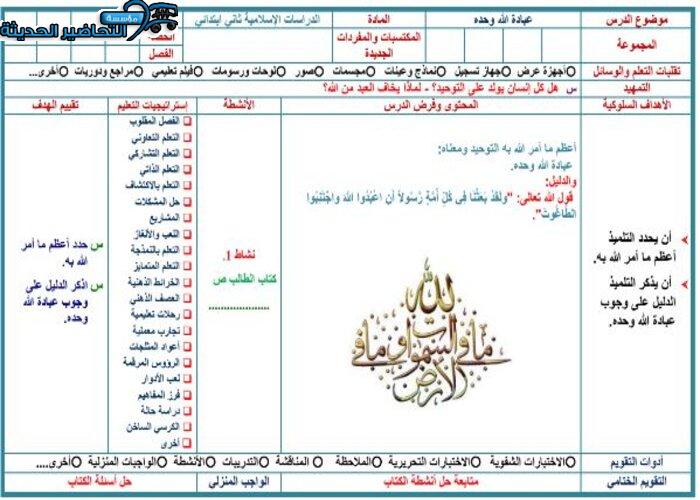 مؤسسة
التحاضير الحديثة
موضوع الدرس
عبادة الله وحده
المادة
الدراسات الإسلامية ثاني ابتدائي
المجموعة
المكتسبات والمفردات
الجديدة
الحصة
الفصل
تقنيات التعلم والوسائل
أجهزة عرض
جهاز تسجيل
نماذج وعينات
مجسمات
صور
لوحات ورسومات
فيلم تعليمي
مراجع ودوريات
أخرى...
التمهيد
س هل كل إنسان يولد على التوحيد؟ - لماذا يخاف العبد من الله؟
الأهداف السلوكية
المحتوى وفرض الدرس
الأنشطة
إستراتيجيات التعليم
تقييم الهدف
أن يحدد التلميذ
أعظم ما أمر الله به.
أن يذكر التلميذ
الدليل على وجوب
عبادة الله وحده.
أعظم ما أمر الله به التوحيد ومعناه:
عبادة الله وحده.
والدليل:
قول الله تعالى: "وَلَقَدْ بَعَثْنَا فِى كُلِّ أُمَّةٍ رَّسُولاً أَنِ اعْبُدُوا الله وَاجْتَنِبُوا
الطَّاغُوتَ".
لله
ما في السموات
وما في
الأرض
نشاط 1.
كتاب الطالب ص
....................
الفصل المقلوب
التعلم التعاوني
التعلم التشاركي
التعلم الذاتي
التعلم بالاكتشاف
حل المشكلات
المشاريع
اللعب والألغاز
التعلم بالنمذجة
التعلم المتمايز
الخرائط الذهنية
العصف الذهني
رحلات تعليمية
تجارب معملية
أعواد المثلجات
الرؤوس المرقمة
لعب الأدوار
فرز المفاهيم
دراسة حالة
الكرسي الساخن
أخرى
س حدد أعظم ما أمر
الله به.
س اذكر الدليل على
وجوب عبادة الله
وحده.
أدوات التقويم
الاختبارات الشفوية
الاختبارات التحريرية
الملاحظة
المناقشة
التدريبات
الأنشطة
الواجبات المنزلية
أخرى....
التقويم الختامي
متابعة حل أنشطة الكتاب
الواجب المنزلي
حل أسئلة الكتاب